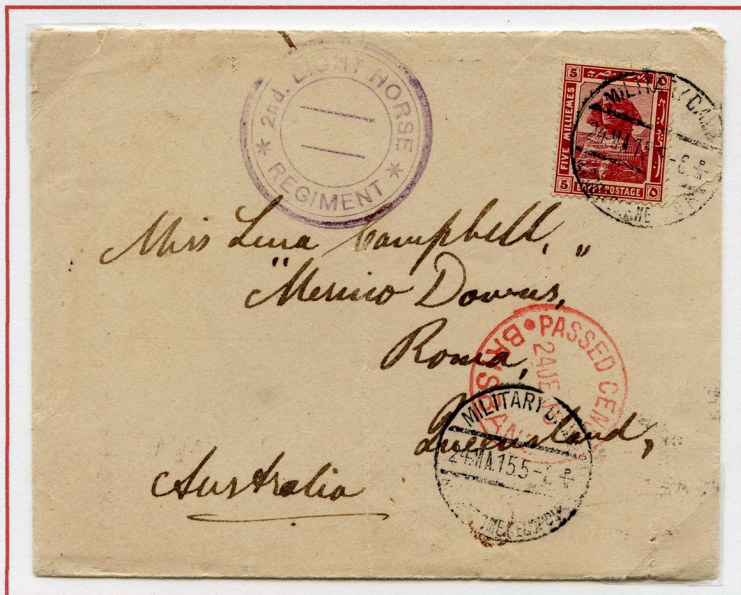 * 2nd. LIGHT HORSE *
REGIMENT
5 5
FIVE MILLIEMES
5 POSTAGE ٥
MILITARY
Miss Lina Campbell,
"Merino Downs,"
Roma,
Queensland,
Australia
PASSED CEN
24
BRISBANE
MILITARY
24.MA.15